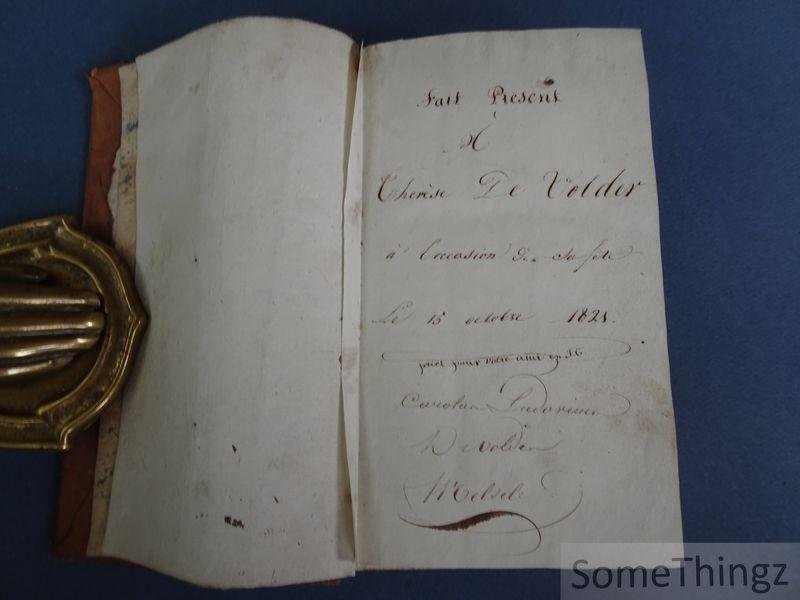 Fait Présent
A
Therèse De Volder
à l'occasion de sa fête
Le 15 octobre 1821.
priez pour votre ami en J.C.
Carolus Ludovicus
De Volder
Melsele
SomeThingz